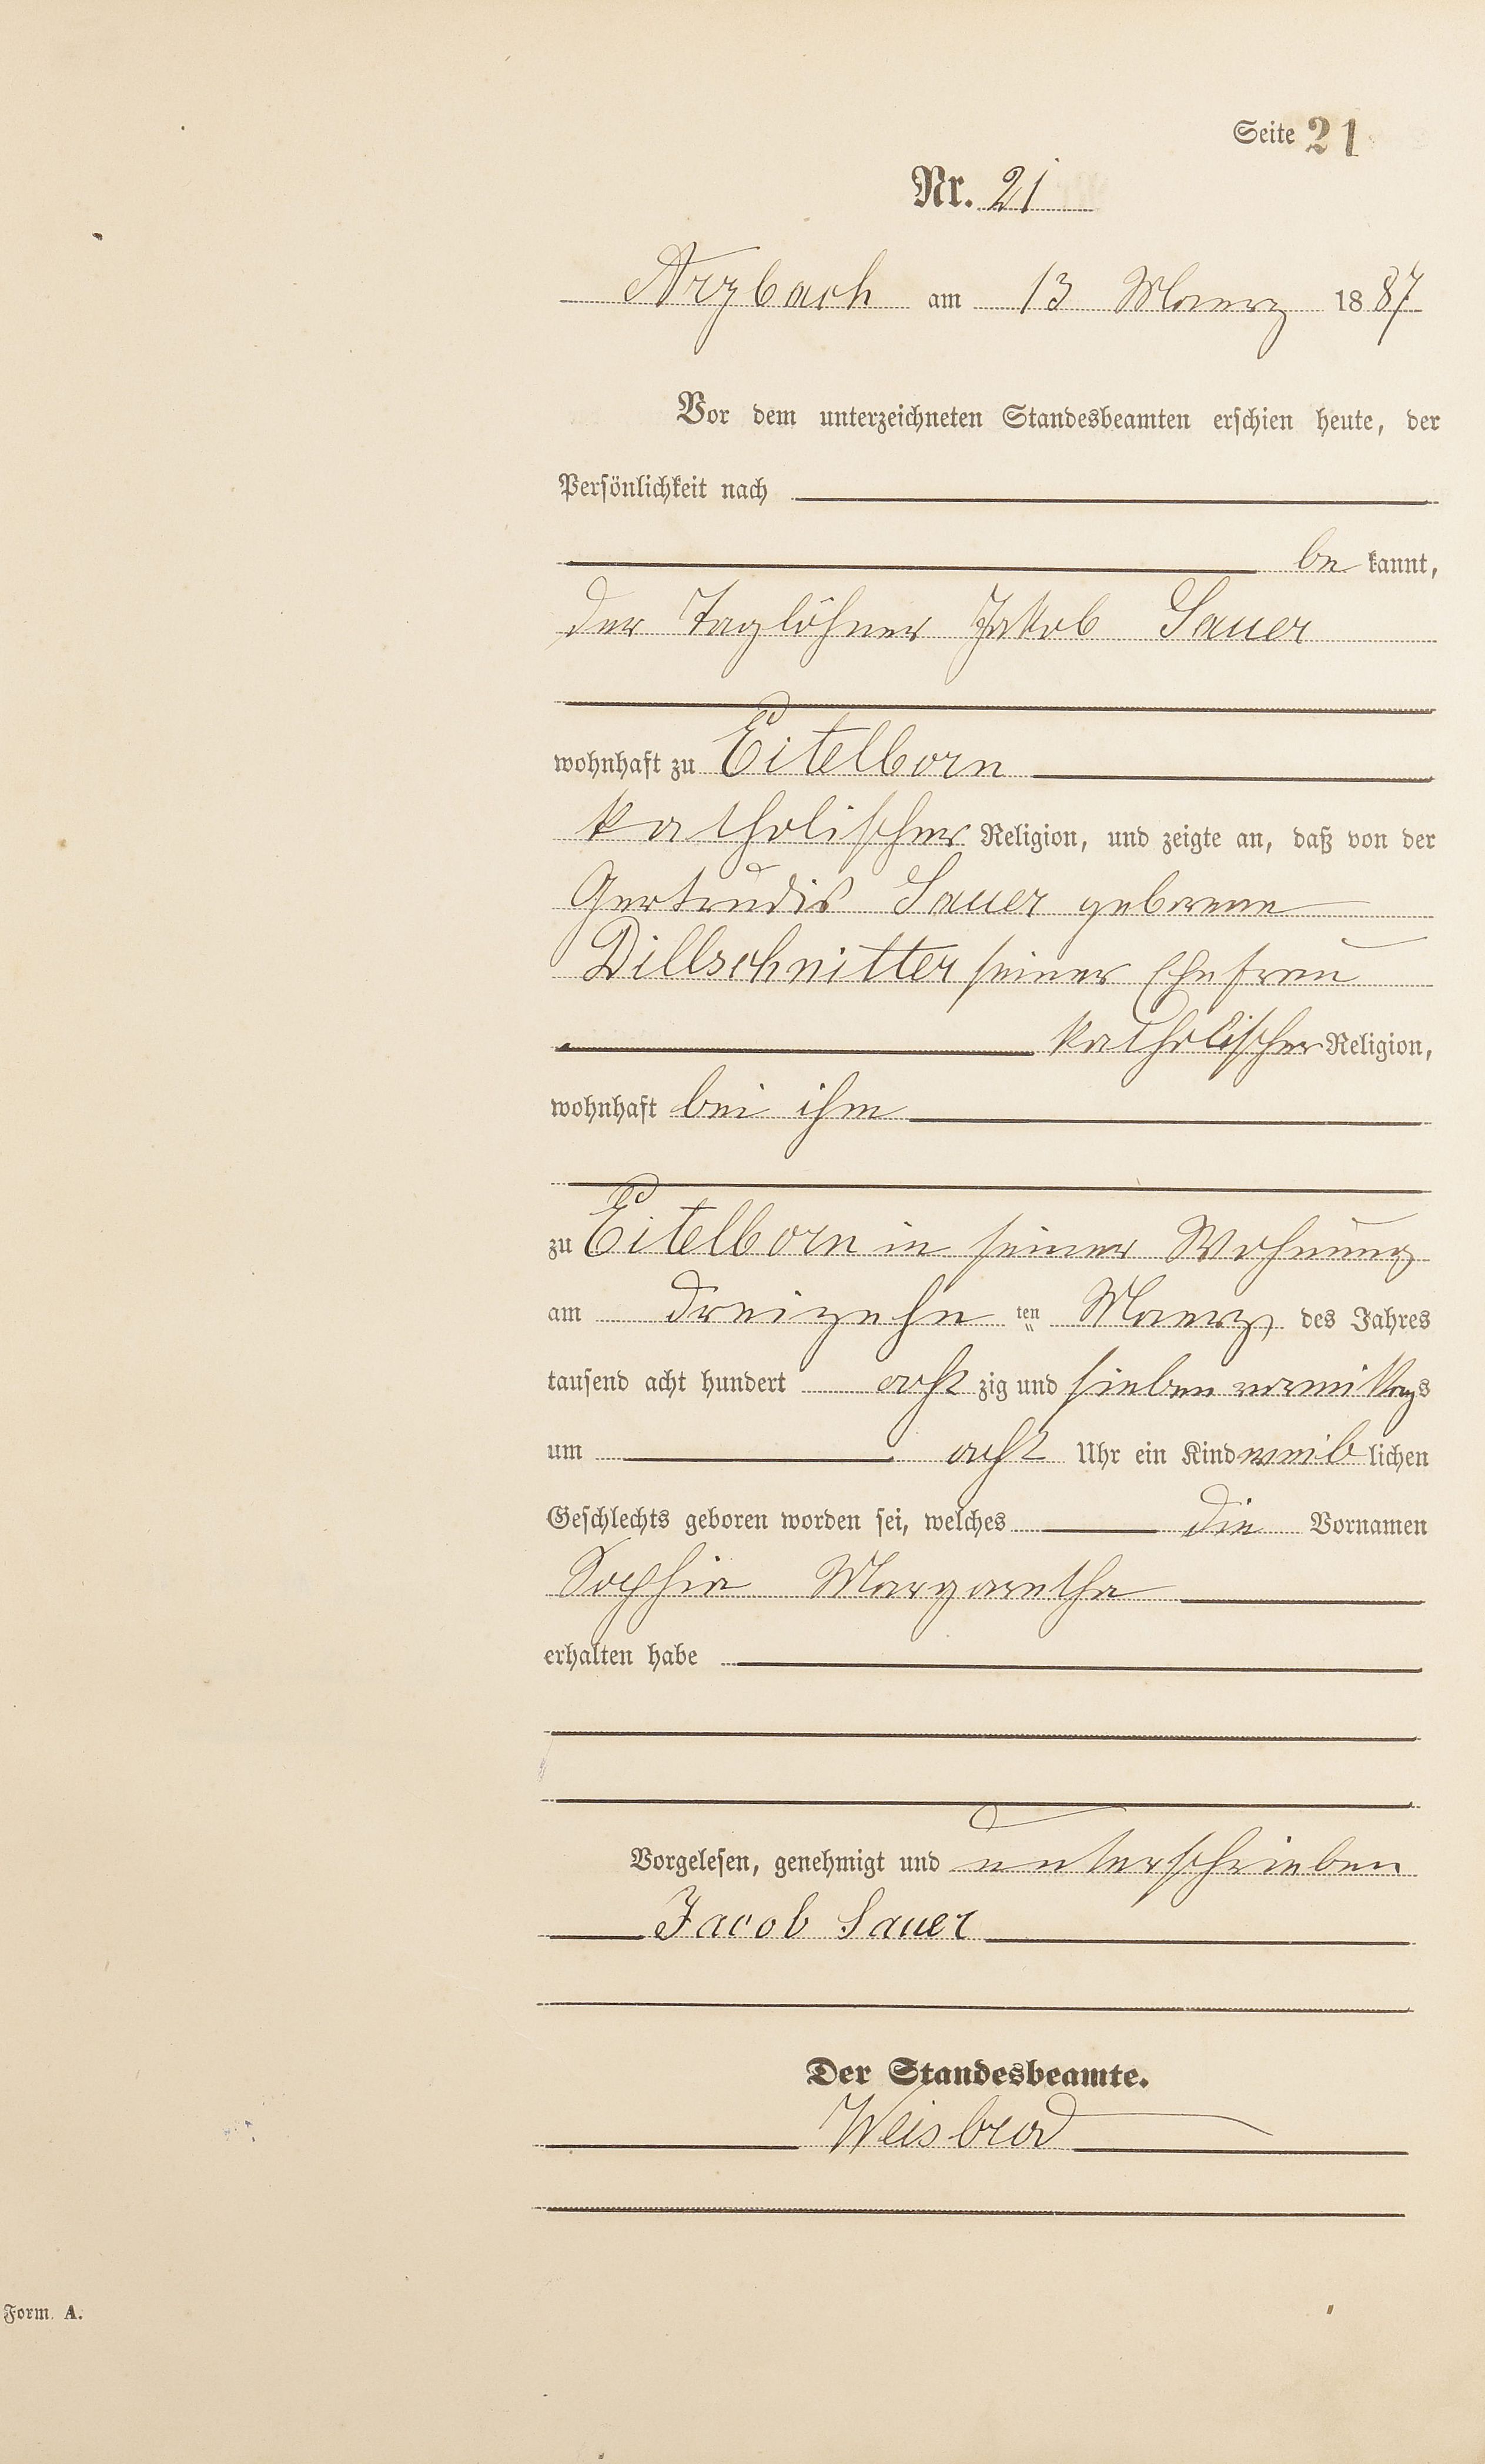 Seite 21
Nr. 21
Arzbach am 13 Maerz 1887
Vor dem unterzeichneten Standesbeamten erschien heute, der
Persönlichkeit nach
be kannt,
der Taglöhner Jakob Sauer
wohnhaft zu Eitelborn
katholischer Religion, und zeigte an, daß von der
Gertrudis Sauer geborene
Dillschnitter seiner Ehefrau
katholischer Religion,
wohnhaft bei ihm
zu Eitelborn in seiner Wohnung
am dreizehn ten Maerz des Jahres
tausend acht hundert acht zig und sieben vormittags
um acht Uhr ein Kind weib lichen
Geschlechts geboren worden sei, welches die Vornamen
Sophia Margaretha
erhalten habe
Vorgelesen, genehmigt und unterschrieben
Jacob Sauer
Der Standesbeamte.
Weisbrod
Form. A.